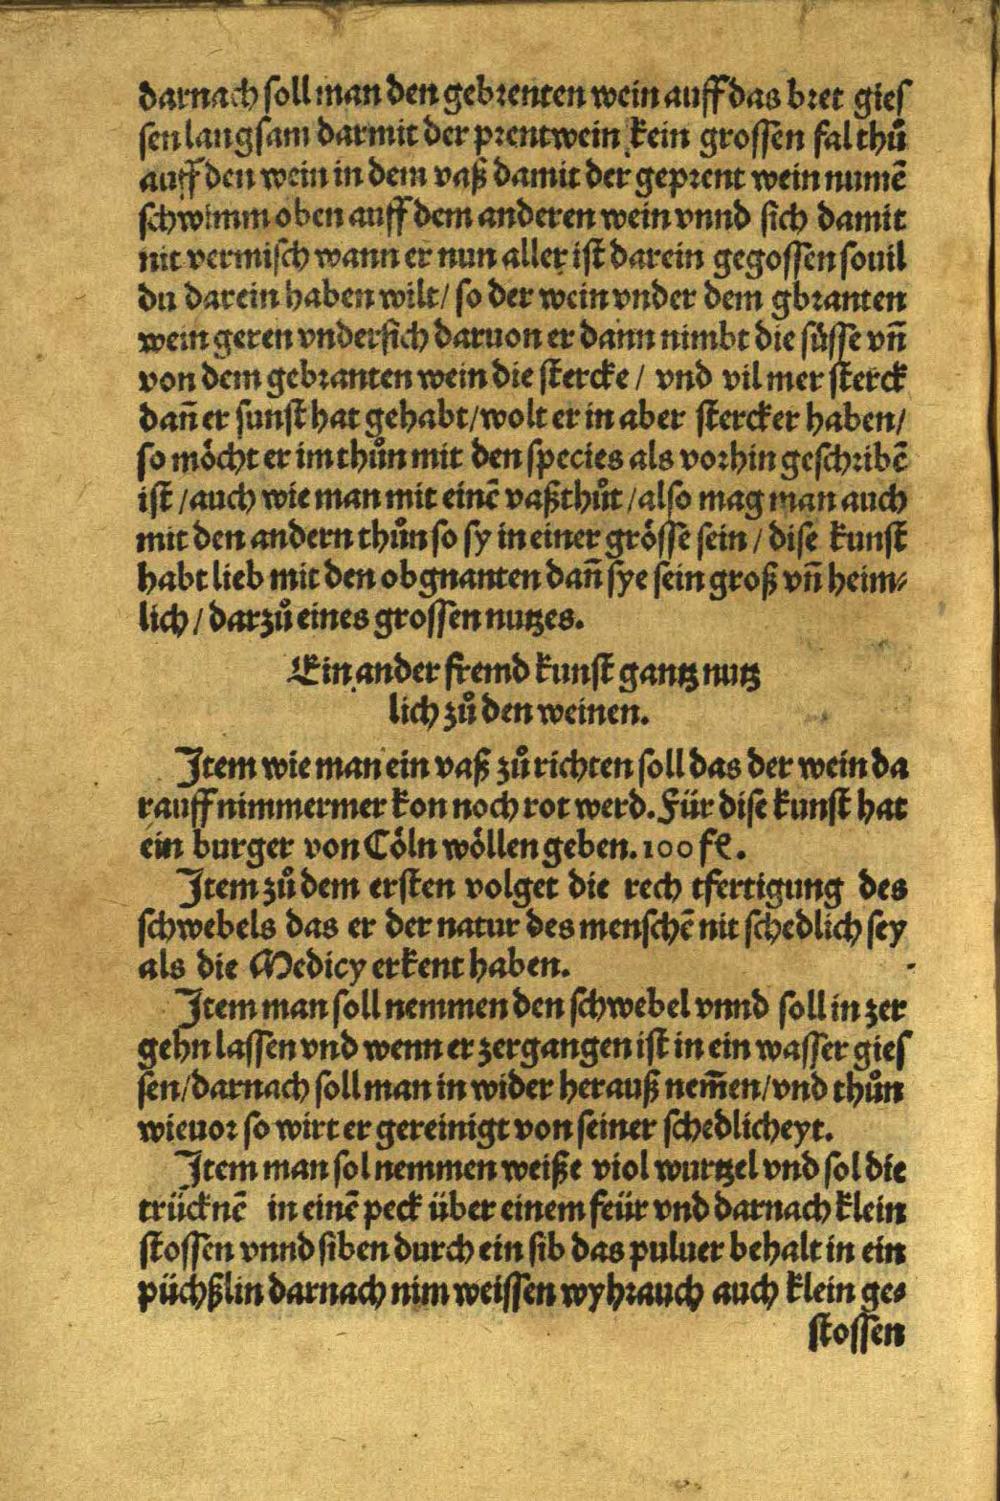 darnach soll man den gebrenten wein auff das bret gies
sen langsam darmit der prentwein kein grossen fal thů
auff den wein in dem vaß damit der geprent wein numẽ
schwimm oben auff dem anderen wein vnnd sich damit
nit vermisch wann er nun aller ist darein gegossen souil
du darein haben wilt/ so der wein vnder dem gbranten
wein geren vndersich daruon er dann nimbt die süsse vñ
von dem gebranten wein die stercke / vnd vil mer sterck
dañ er sunst hat gehabt/wolt er in aber stercker haben/
so möcht er im thůn mit den species als vorhin geschribẽ
ist /auch wie man mit einẽ vaß thůt /also mag man auch
mit den andern thůn so sy in einer grösse sein / dise kunst
habt lieb mit den obgnanten dañ sye sein groß vñ heim⸗
lich / darzů eines grossen nutzes.
Ein ander fremd kunst gantz nutz
lich zů den weinen.
Item wie man ein vaß zůrichten soll das der wein da
rauff nimmermer kon noch rot werd. Für dise kunst hat
ein burger von Cöln wöllen geben. 100 fl.
Item zů dem ersten volget die rech tfertigung des
schwebels das er der natur des menschẽ nit schedlich sey
als die Medicy erkent haben.
Item man soll nemmen den schwebel vnnd soll in zer
gehn lassen vnd wenn er zergangen ist in ein wasser gies
sen/darnach soll man in wider herauß nem̃en/vnd thůn
wieuor so wirt er gereinigt von seiner schedlicheyt.
Item man sol nemmen weiße viol wurtzel vnd sol die
trücknẽ in einẽ peck über einem feür vnd darnach klein
stossen vnnd siben durch ein sib das puluer behalt in ein
püchßlin darnach nim weissen wyhrauch auch klein ge⸗
stossen